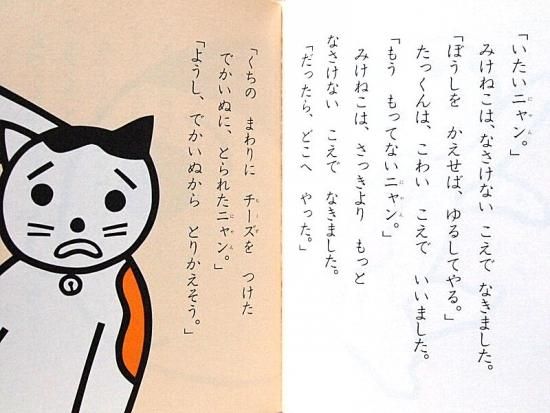 「いたいニャン。」
みけねこは、なさけない こえで なきました。
「ぼうしを かえせば、ゆるしてやる。」
たっくんは、こわい こえで いいました。
「もう もってないニャン。」
みけねこは、さっきより もっと
なさけない こえで なきました。
「だったら、どこへ やった。」
「くちの まわりに チーズを つけた
でかいぬに、とられたニャン。」
「ようし、でかいぬから とりかえそう。」